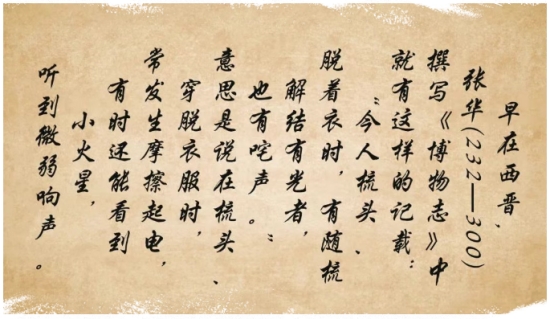 早在西晋、
张华(232—300)
撰写《博物志》中
就有这样的记载：
“今人梳头、
脱着衣时，有随梳
解结有光者，
也有咤声。”
意思是说在梳头、
穿脱衣服时，
常发生摩擦起电，
有时还能看到
小火星，
听到微弱响声。